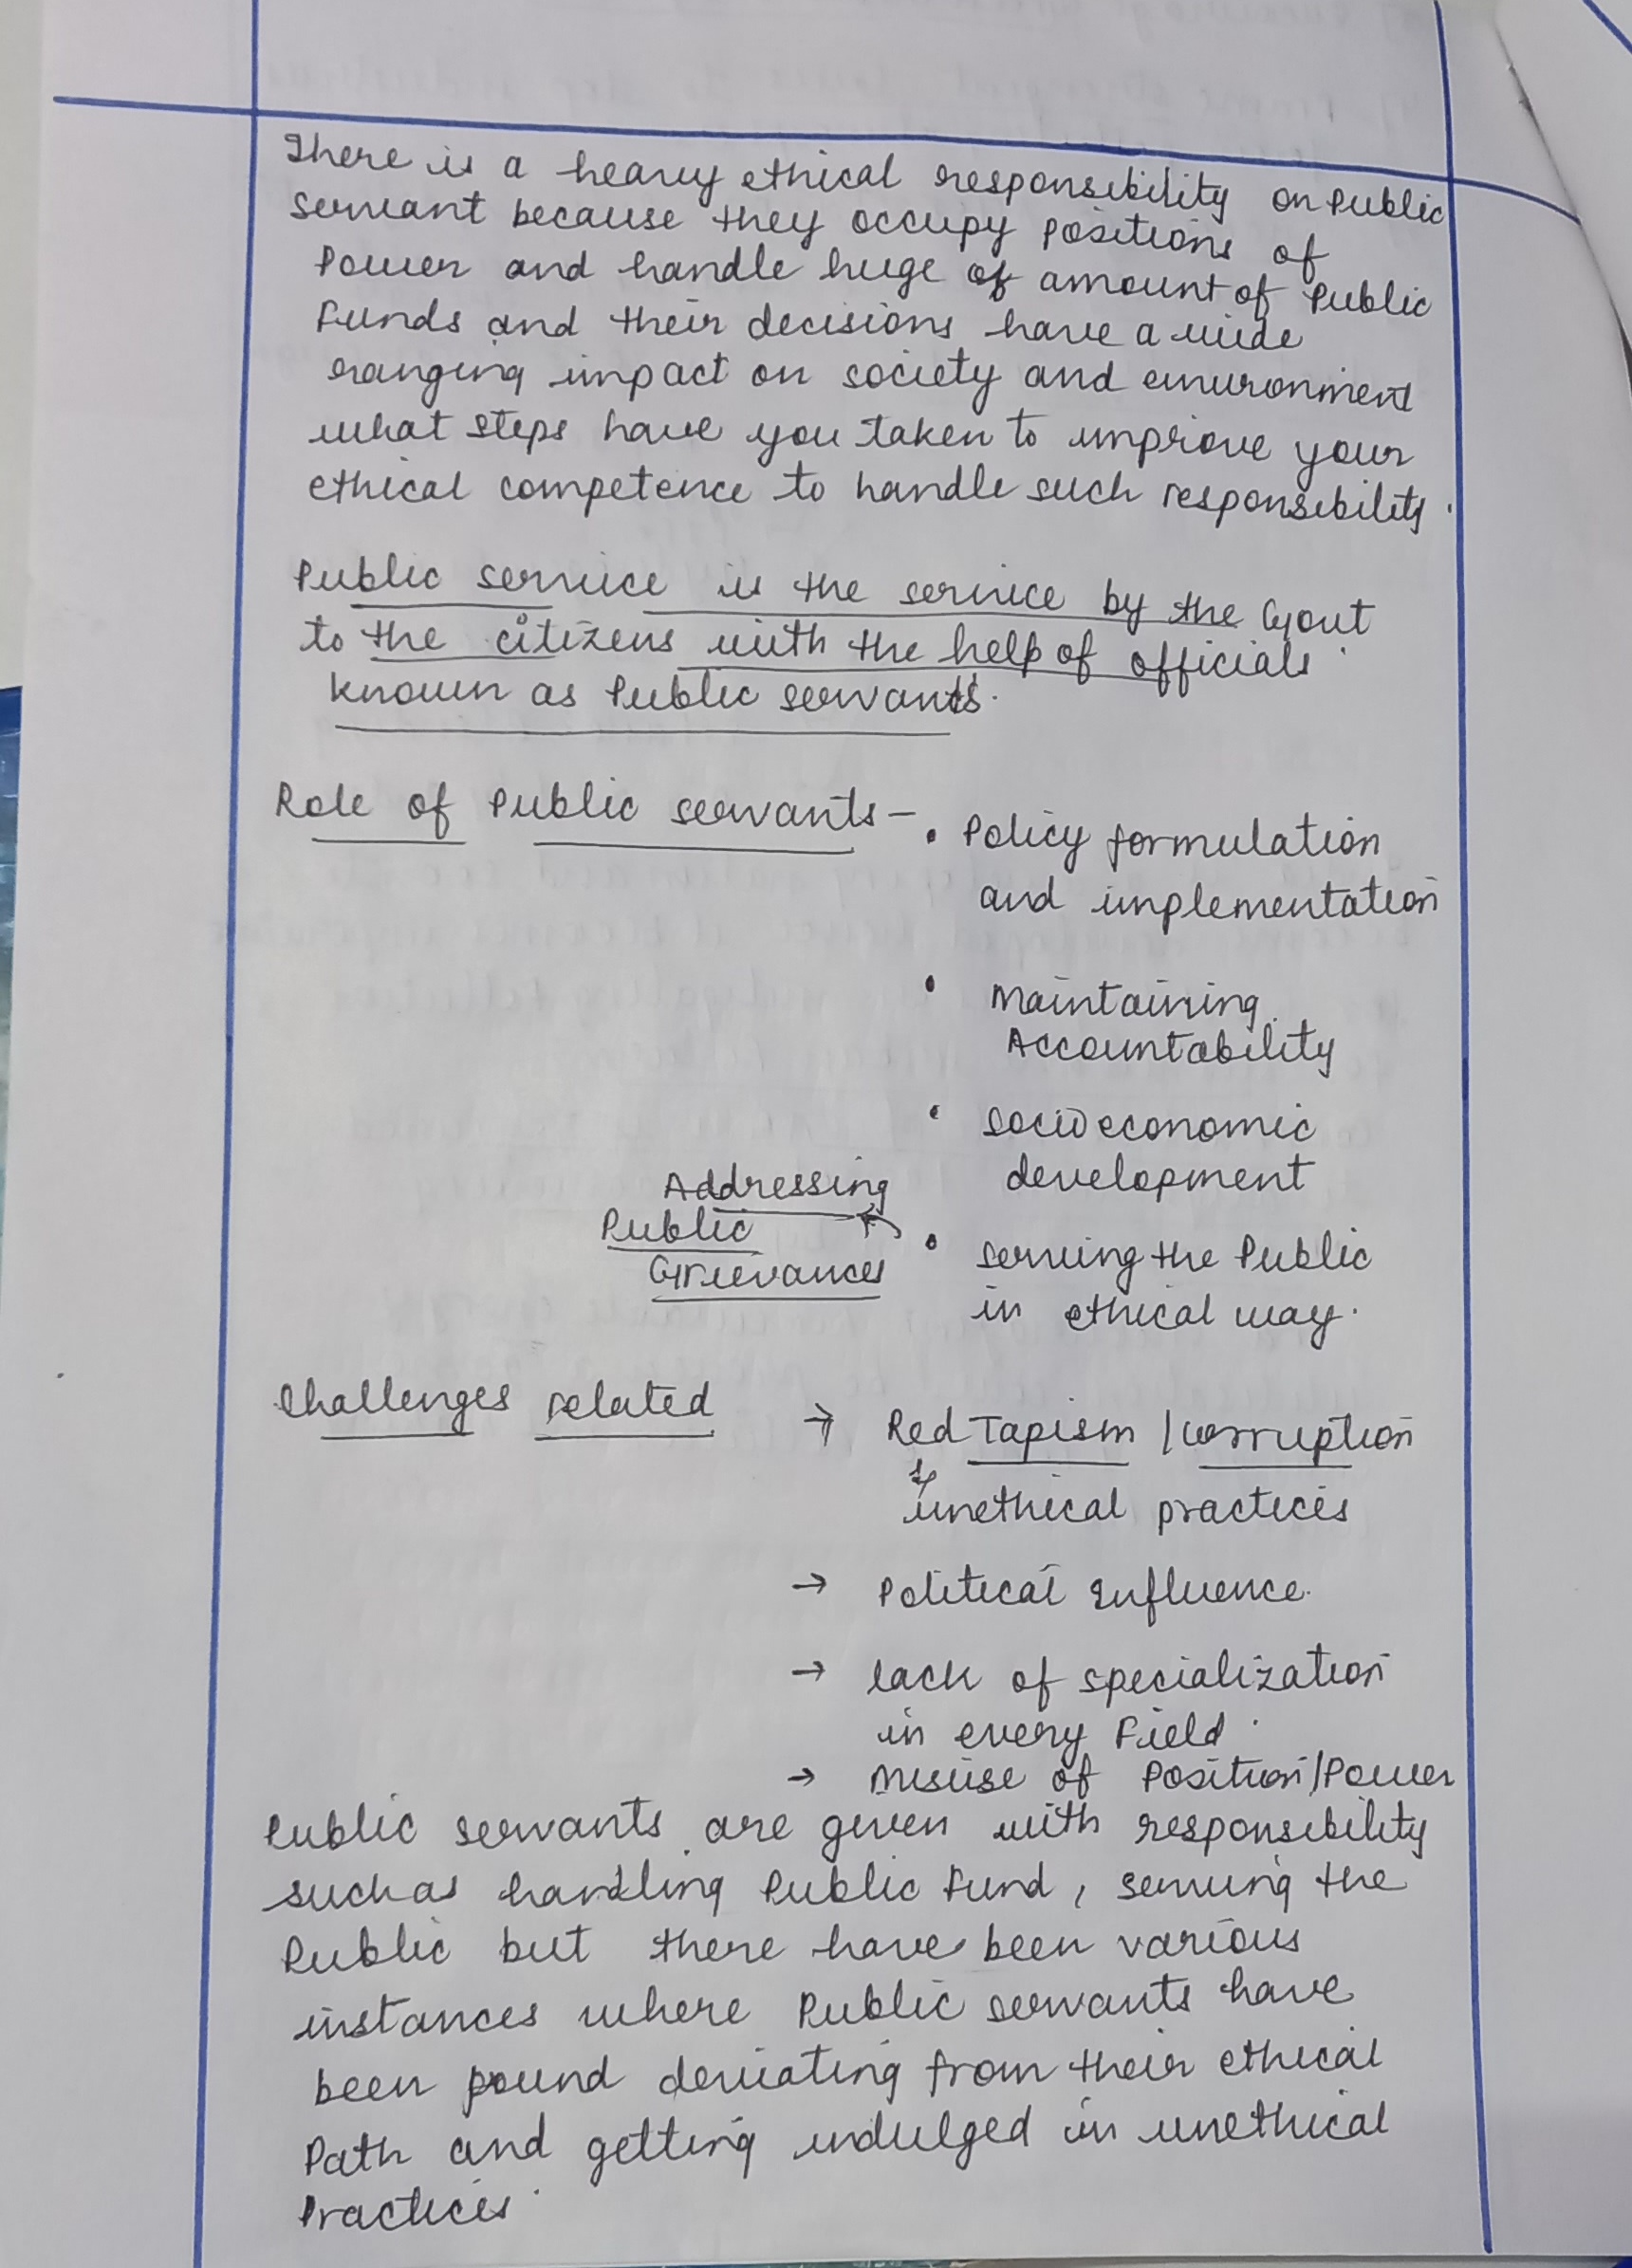 There is a heavy ethical responsibility on Public
servant because they occupy positions of
Power and handle huge of amount of Public
Funds and their decisions have a wide
ranging impact on society and environment
what steps have you taken to improve your
ethical competence to handle such responsibility.
Public service is the service by the Govt
to the citizens with the help of officials
known as Public servants.
Role of Public servants -
• Policy formulation
and implementation
• Maintaining
Accountability
• socio economic
development
• serving the Public
in ethical way.
Addressing
Public
Grievances
Challenges related
→ Red Tapism / corruption
unethical practices
→ Political Influence.
→ lack of specialization
in every Field.
→ Misuse of Position/Power
Public servants are given with responsibility
such as handling Public Fund, serving the
Public but there have been various
instances where Public servants have
been found deviating from their ethical
Path and getting indulged in unethical
Practices.